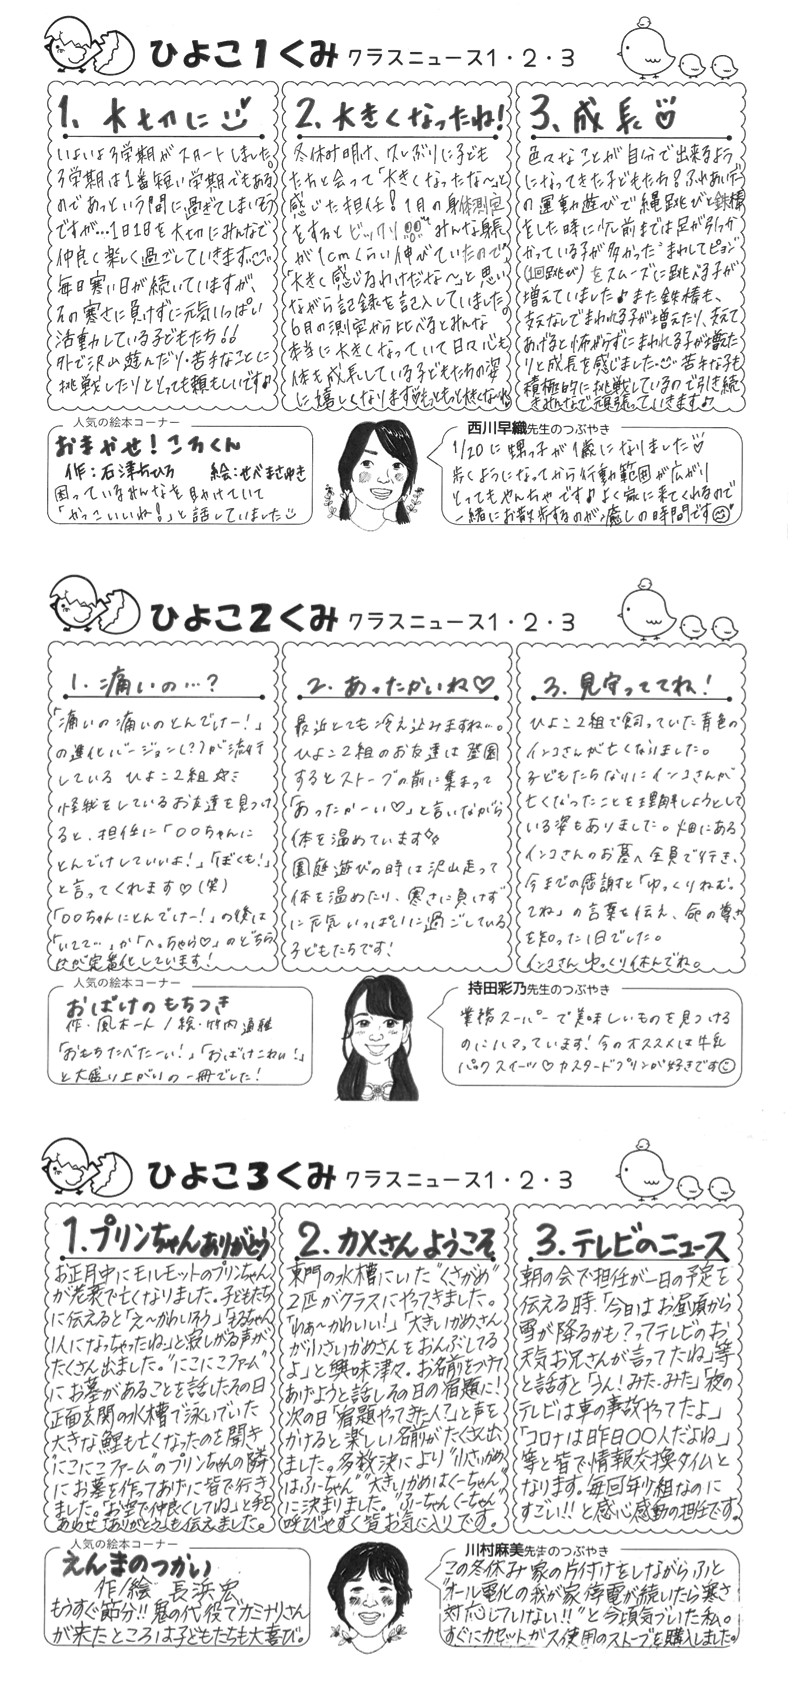 ひよこ1くみ クラスニュース1・2・3
1. 大切に
いよいよ3学期がスタートしました。
3学期は1番短い学期でもある
のであっという間に過ぎてしまいそう
ですが…1日1日を大切にみんなで
仲良く楽しく過ごしていきます
毎日寒い日が続いていますが、
その寒さに負けずに元気いっぱい
活動している子どもたち!!
外で沢山遊んだり・苦手なことに
挑戦したりととっても頼もしいです♪
2. 大きくなったね!
冬休み明け、久しぶりに子ども
たちと会って「大きくなったな〜」と
感じた担任!1月の身体測定
をするとビックリ!!みんな身長
が1cmくらい伸びていたので
「大きく感じるわけだな〜」と思い
ながら記録を記入していました。
6月の測定から比べるとみんな
本当に大きくなっていて日々心も
体も成長している子どもたちの姿
に嬉しくなります もっともっと大きくなれ
3. 成長
色々なことが自分で出来るよう
になってきた子どもたち!ふれあいだ
の運動遊びで縄跳びと鉄棒
をした時に少し前までは足が引っか
かっている子が多かった"まわしてピョン"
(1回跳び)をスムーズに跳べる子が
増えていました♪また鉄棒も、
支えなしでまわれる子が増えたり、支えて
あげると怖がらずにまわれる子が増えた
りと成長を感じました 苦手な子も
積極的に挑戦しているので引き続
きみんなで頑張っていきます♪
人気の絵本コーナー
おまかせ!ころくん
作:石津ちひろ 絵:せべまさゆき
困っているみんなを助けていて
「かっこいいね!」と話していました
西川早織先生のつぶやき
1/20に甥っ子が1歳になりました
歩くようになってから行動範囲が広がり
とってもやんちゃです♪よく家に来てくれるので
一緒にお散歩するのが癒しの時間です
ひよこ2くみ クラスニュース1・2・3
1. 痛いの…?
「痛いの痛いのとんでけー!」
の進化バージョン(?)が流行
している ひよこ2組☆ミ
怪我をしているお友達を見つけ
ると、担任に「○○ちゃんに
とんでけしていいよ!」「ぼくも!」
と言ってくれます♡(笑)
「○○ちゃんにとんでけー!」の後は
「いてて…」か「へっちゃら♡」のどちら
かが定番化しています!
2. あったかいね♡
最近とても冷え込みますね…。
ひよこ2組のお友達は登園
するとストーブの前に集まって
「あったかーい♡」と言いながら
体を温めています
園庭遊びの時は沢山走って
体を温めたり、寒さに負けず
に元気いっぱいに過ごしている
子どもたちです!
3. 見守っててね!
ひよこ2組で飼っていた青色の
インコさんが亡くなりました。
子どもたちなりにインコさんが
亡くなったことを理解しようとして
いる姿もありました。畑にある
インコさんのお墓へ全員で行き、
今までの感謝と「ゆっくりねむっ
てね」の言葉を伝え、命の尊さ
を知った1日でした。
インコさん ゆっくり休んでね。
人気の絵本コーナー
おばけのもちつき
作・風木一人/絵・竹内通雅
「おもちたべたーい!」「おばけこわい!」
と大盛り上がりの一冊でした!
持田彩乃先生のつぶやき
業務スーパーで美味しいものを見つける
のにハマっています!今のオススメは牛乳
パックスイーツ♡カスタードプリンが好きです
ひよこ3くみ クラスニュース1・2・3
1. プリンちゃんありがとう
お正月中にモルモットのプリンちゃん
が老衰で亡くなりました。子どもたち
に伝えると「え〜かわいそう」「ももちゃん
1人になっちゃったね」と寂しがる声が
たくさん出ました。"にこにこファーム"
にお墓があることを話したその日
正面玄関の水槽で泳いでいた
大きな鯉も亡くなったのを聞き
"にこにこファーム"のプリンちゃんの隣
にお墓を作ってあげに皆で行き
ました。「お空で仲良くしてね」と手を
あわせ「ありがとう」も伝えました。
2. カメさんようこそ
東門の水槽にいた"くさがめ"
2匹がクラスにやってきました。
「わぁ〜かわいい!」「大きいかめさん
が小さいかめさんをおんぶしてる
よ」と興味津々。お名前をつけて
あげようと話しその日の宿題に!
次の日「宿題やってきた人?」と声を
かけると楽しい名前がたくさん出
ました。多数決により"小さいかめ
はふーちゃん""大きいかめはくーちゃん"
に決まりました。"ふーちゃんくーちゃん"
呼びやすく皆お気に入りです。
3. テレビのニュース
朝の会で担任が一日の予定を
伝える時、「今日はお昼頃から
雪が降るかも?ってテレビのお
天気お兄さんが言ってたね」等
と話すと「うん!みた・みた」「夜の
テレビは車の事故やってたよ」
「コロナは昨日○○人だよね」
等と皆で情報交換タイムと
なります。毎回年少組なのに
すごい!!と感心感動の担任です。
人気の絵本コーナー
えんまのつかい
作/絵 長浜宏
もうすぐ節分!!鬼の代役でカミナリさん
が来たところは子どもたちも大喜び。
川村麻美先生のつぶやき
この冬休み家の片付けをしながらふと
"オール電化の我が家停電が続いたら寒さ
対応していない!!"と今頃気づいた私。
すぐにカセットガス使用のストーブを購入しました。